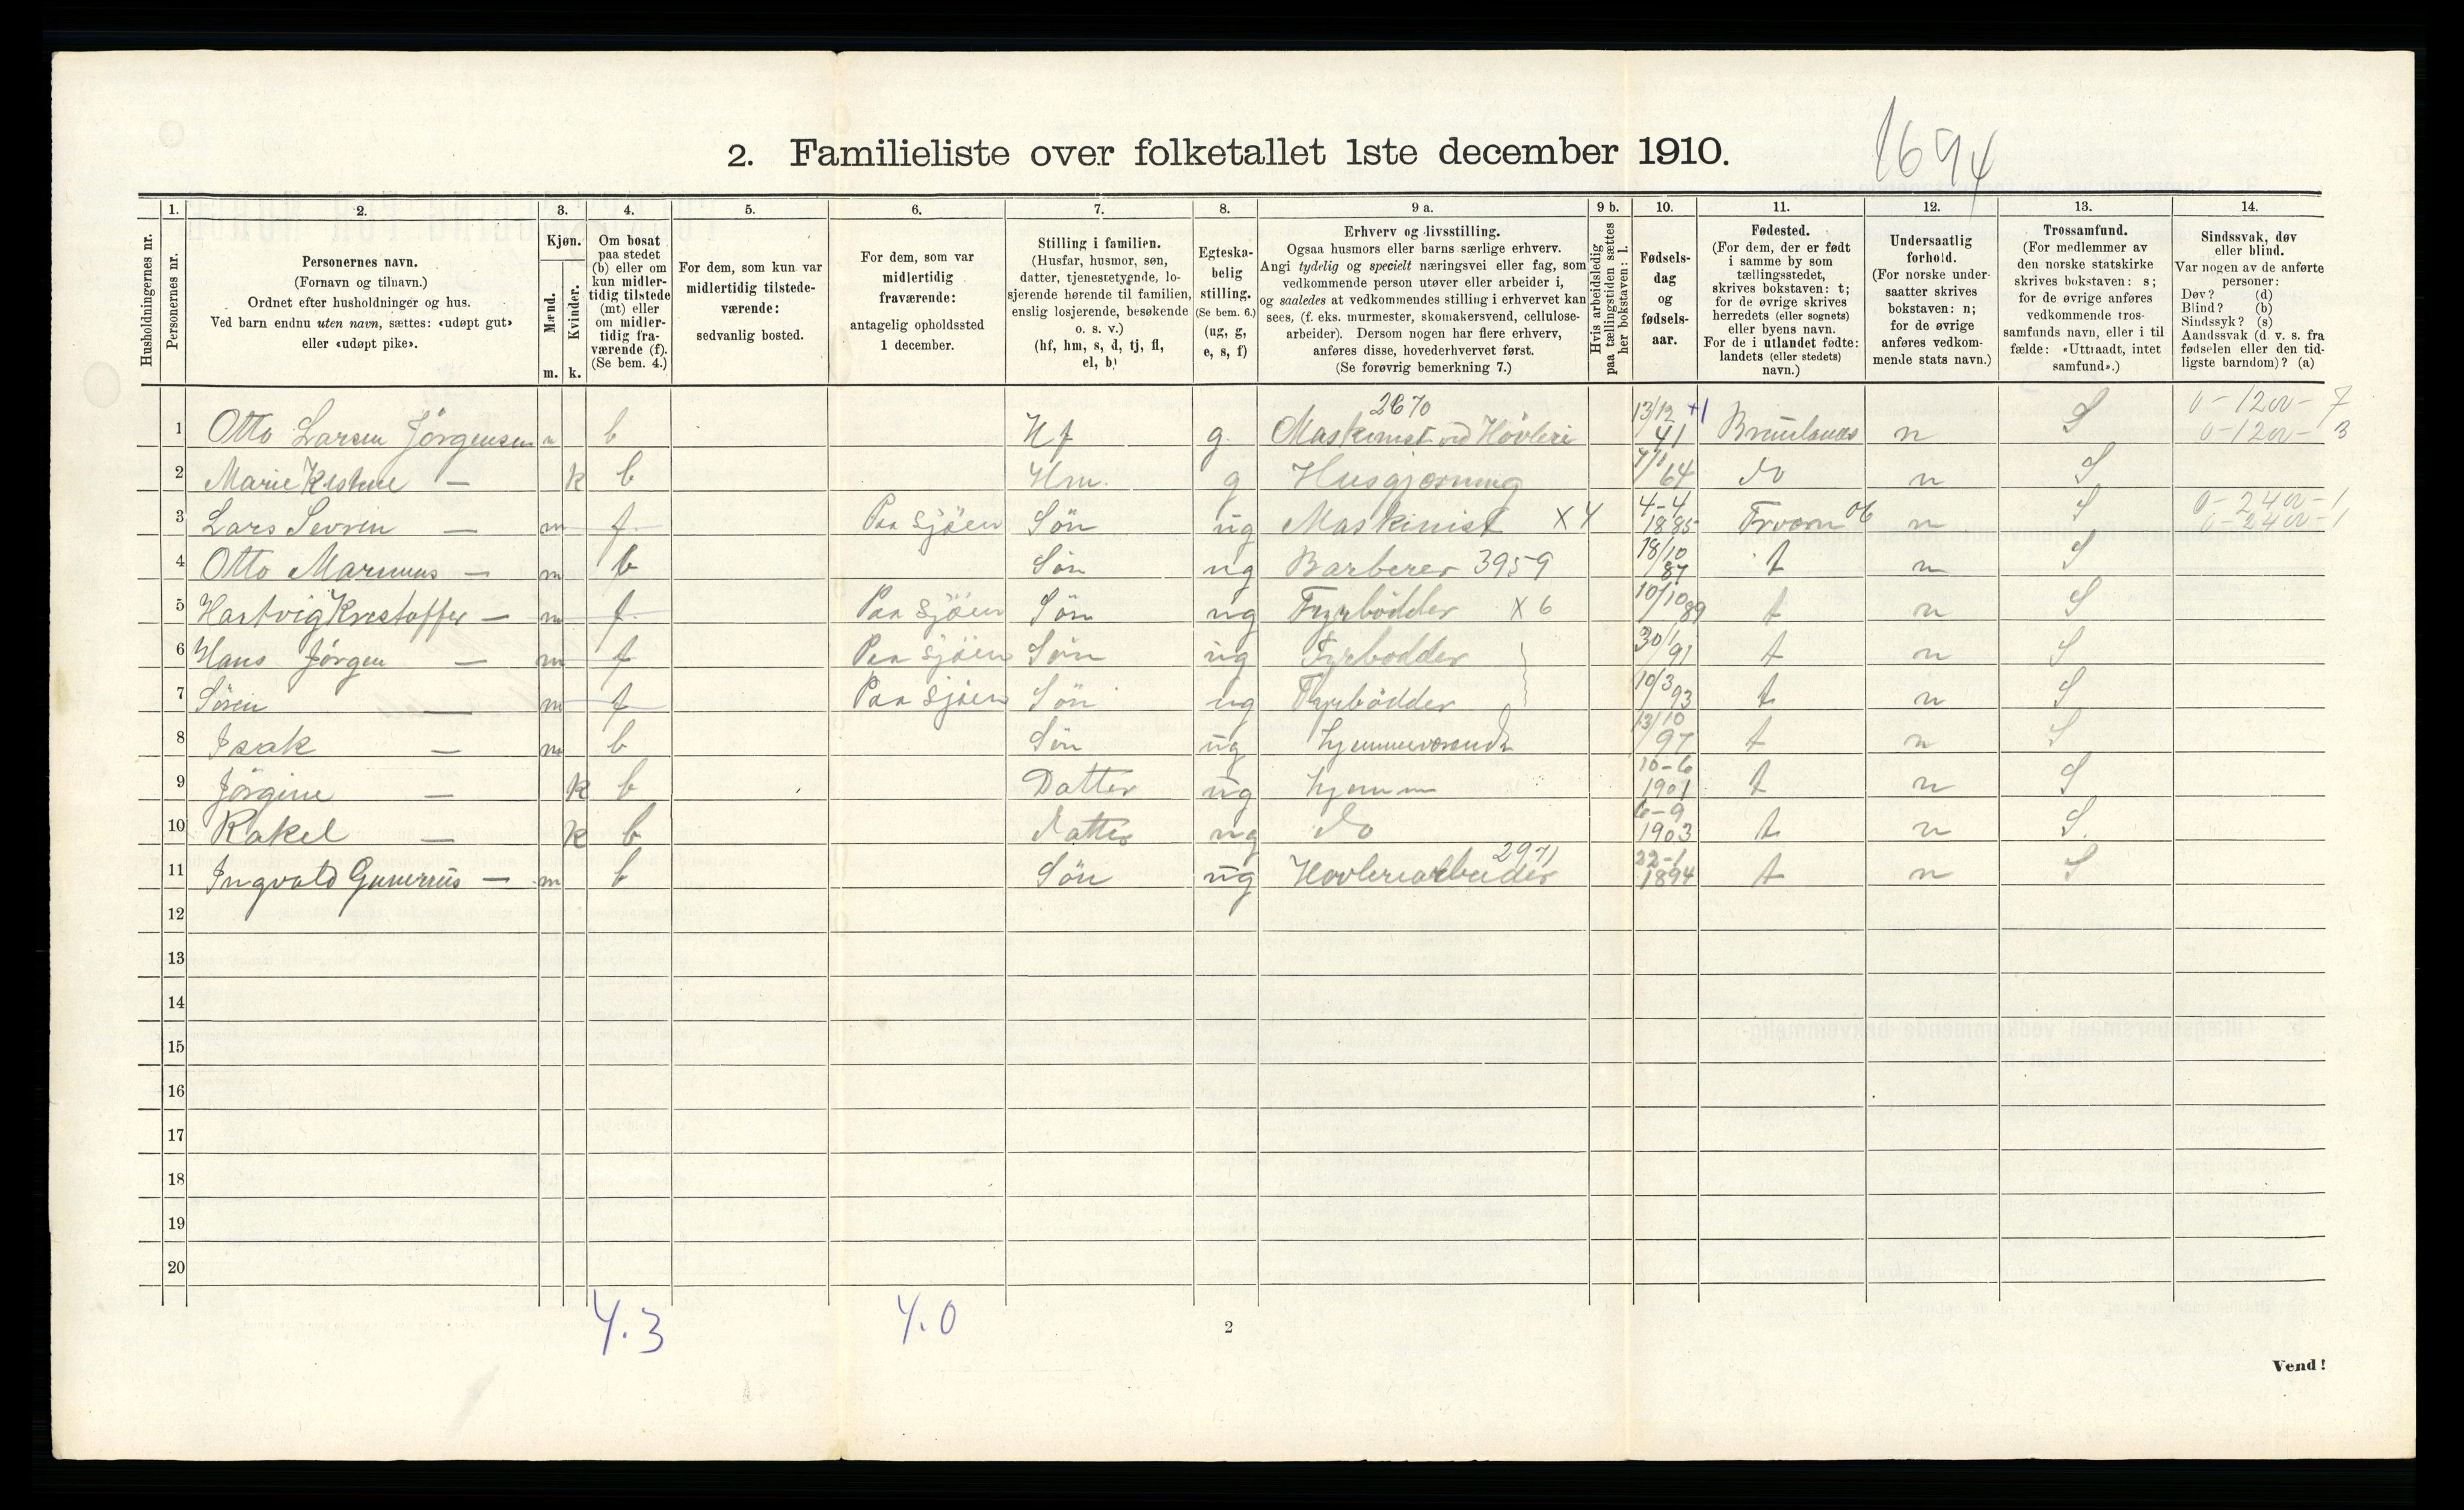 1694
2. Familieliste over folketallet 1ste december 1910.
Husholdningernes nr.
1.
Personernes nr.
2.
Personernes navn.
(Fornavn og tilnavn.)
Ordnet efter husholdninger og hus.
Ved barn endnu uten navn, sættes: «udøpt gut»
eller «udøpt pike».
3.
Kjøn.
Mænd.
Kvinder.
m. k.
4.
Om bosat
paa stedet
(b) eller om
kun midler-
tidig tilstede
(mt) eller
om midler-
tidig fra-
værende (f).
(Se bem. 4.)
5.
For dem, som kun var
midlertidig tilstede-
værende:
sedvanlig bosted.
6.
For dem, som var
midlertidig
fraværende:
antagelig opholdssted
1 december.
7.
Stilling i familien.
(Husfar, husmor, søn,
datter, tjenestetyende, lo-
sjerende hørende til familien,
enslig losjerende, besøkende
o. s. v.)
(hf, hm, s, d, tj, fl,
el, b)
8.
Egteska-
belig
stilling.
(Se bem. 6.)
(ug, g,
e, s, f)
9 a.
Erhverv og livsstilling.
Ogsaa husmors eller barns særlige erhverv.
Angi tydelig og specielt næringsvei eller fag, som
vedkommende person utøver eller arbeider i,
og saaledes at vedkommendes stilling i erhvervet kan
sees, (f. eks. murmester, skomakersvend, cellulose-
arbeider). Dersom nogen har flere erhverv,
anføres disse, hovederhvervet først.
(Se forøvrig bemerkning 7.)
9 b.
Hvis arbeidsledig
paa tællingstiden sættes
her bokstaven: l.
10.
Fødsels-
dag
og
fødsels-
aar.
11.
Fødested.
(For dem, der er født
i samme by som
tællingsstedet,
skrives bokstaven: t;
for de øvrige skrives
herredets (eller sognets)
eller byens navn.
For de i utlandet fødte:
landets (eller stedets)
navn.)
12.
Undersaatlig
forhold.
(For norske under-
saatter skrives
bokstaven: n;
for de øvrige
anføres vedkom-
mende stats navn.)
13.
Trossamfund.
(For medlemmer av
den norske statskirke
skrives bokstaven: s;
for de øvrige anføres
vedkommende tros-
samfunds navn, eller i til
fælde: «Uttraadt, intet
samfund».)
14.
Sindssvak, døv
eller blind.
Var nogen av de anførte
personer:
Døv? (d)
Blind? (b)
Sindssyk? (s)
Aandssvak (d. v. s. fra
fødselen eller den tid-
ligste barndom)? (a)
2670 13/12 +1 0-1200- 7
1 Otto Larsen Jörgensen m b Hf g. Maskinist ved Hövleri 41 Brunlanes n S 0-1200- 3
2 Marie — k b Hm. g Husgjerning 7/1 64 do n S
3 Lars Sevrin — m f Paa Sjöen Sön ug Maskinist X4 4-4 1885 06 n S 0-2400-1 0-2400-1
4 Otto Marinius — m b Sön ug Barberer 3959 18/10 87 t n S
5 Hartvig Kristoffer — m f Paa Sjöen Sön ug Fyrbödder X6 10/10 89 t n S
6 Hans Jörgen — m f Paa Sjöen Sön ug Fyrbödder 30/1 91 t n S
7 Sören — m f Paa Sjöen Sön ug Fyrbödder 10/3 93 t n S
8 Isak — m b Sön ug hjemmeværende 13/10 97 t n S
9 Jörgine — k b Datter ug hjemme 10-6 1901 t n S
10 Rakel — k b Datter ug do 6-9 1903 t n S.
11 Ingvald Gunerius — m b Sön ug Hovleriarbeider 2971 22-1 1894 t n S
12
13
14
15
16
17
18
19
20
4.3 4.0
2
Vend!